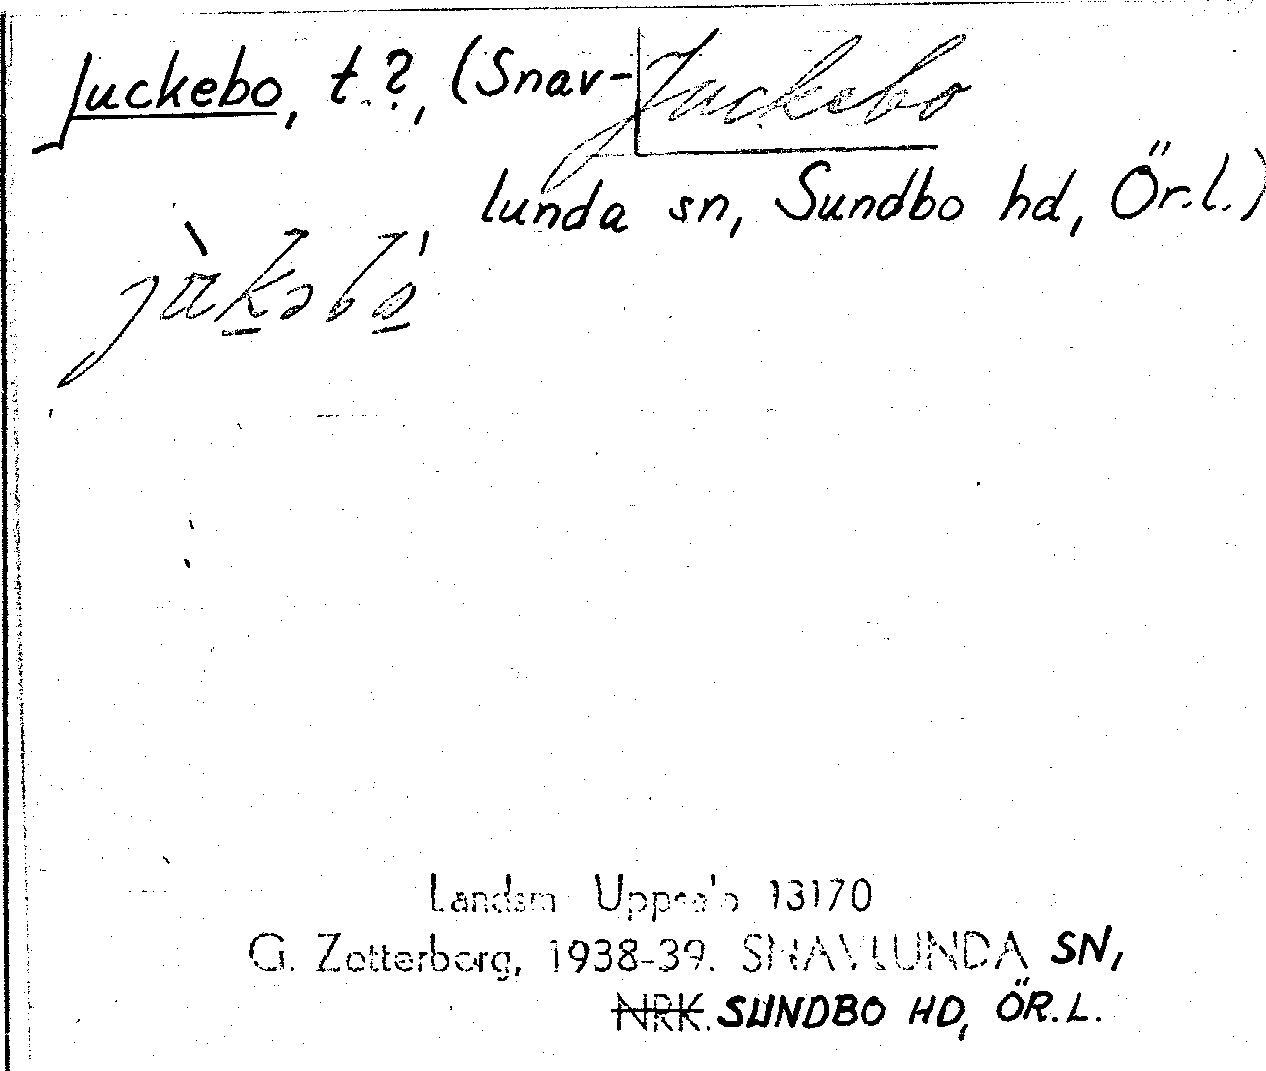 Juckebo, t.?, (Snav- Juckebo
lunda sn, Sundbo hd, Ör.l.)
Landsm Uppsala 13170
G. Zetterberg, 1938-39. SNAVLUNDA SN,
NRK. SUNDBO HD, ÖR.L.